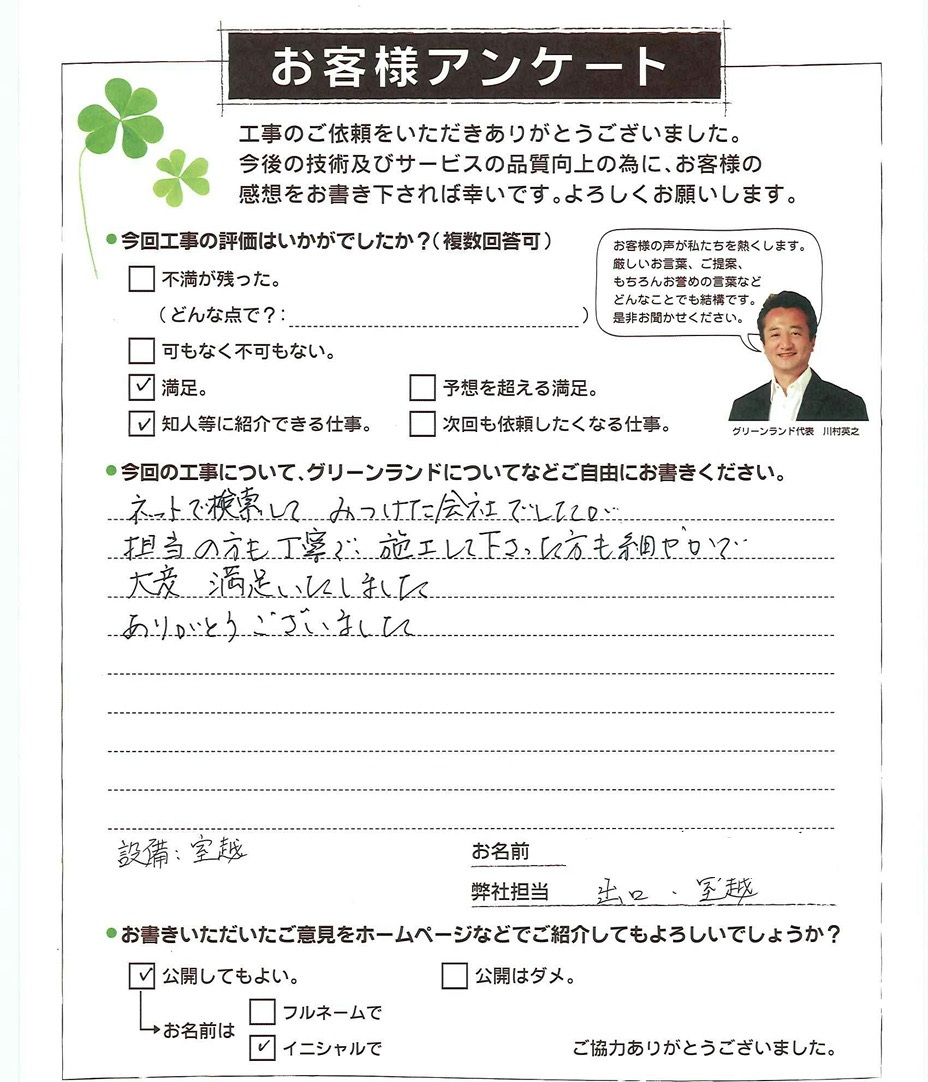 お客様アンケート
工事のご依頼をいただきありがとうございました。
今後の技術及びサービスの品質向上の為に、お客様の
感想をお書き下されば幸いです。よろしくお願いします。
●今回工事の評価はいかがでしたか？（複数回答可）
お客様の声が私たちを熱くします。
厳しいお言葉、ご提案、
もちろんお誉めの言葉など
どんなことでも結構です。
是非お聞かせください。
□不満が残った。
（どんな点で？：）
□可もなく不可もない。
☑満足。 □予想を超える満足。
☑知人等に紹介できる仕事。 □次回も依頼したくなる仕事。
グリーンランド代表 川村英之
●今回の工事について、グリーンランドについてなどご自由にお書きください。
ネットで検索して みつけた会社でしたが
担当の方も丁寧で 施工して下さった方も細やかで
大変 満足いたしました
ありがとうございました
設備：室越
お名前
弊社担当 出口・室越
●お書きいただいたご意見をホームページなどでご紹介してもよろしいでしょうか？
☑公開してもよい。 □公開はダメ。
お名前は
□フルネームで
☑イニシャルで
ご協力ありがとうございました。